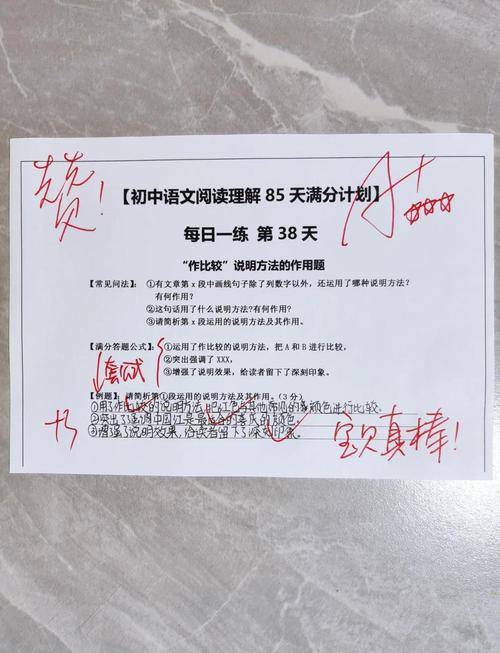 赞！
A+
【初中语文阅读理解 85 天满分计划】
每日一练 第 38 天
“作比较”说明方法的作用题
【常见问法】：①有文章第 x 段中画线句子除了列数字以外，还运用了哪种说明方法？
有何作用？
②这句话用了什么说明方法?有何作用?
③请简析第 x 段运用的说明方法及其作用。
【满分答题公式】：①运用了作比较的说明方法，把 A 和 B 进行比较，
②突出强调了 XXX,
③增强了说明效果，给读者留下了深刻印象。
套公式
【例题】：请简析第①段运用的说明方法及其作用。（3 分）
①用了作比较的说明方法，把红色与其他常见的颜色进行比较。
②突出了强调中国红是最 的喜庆的颜色。
③增强了说明效果，给读者留下了深刻印象。
+3
宝贝真棒！